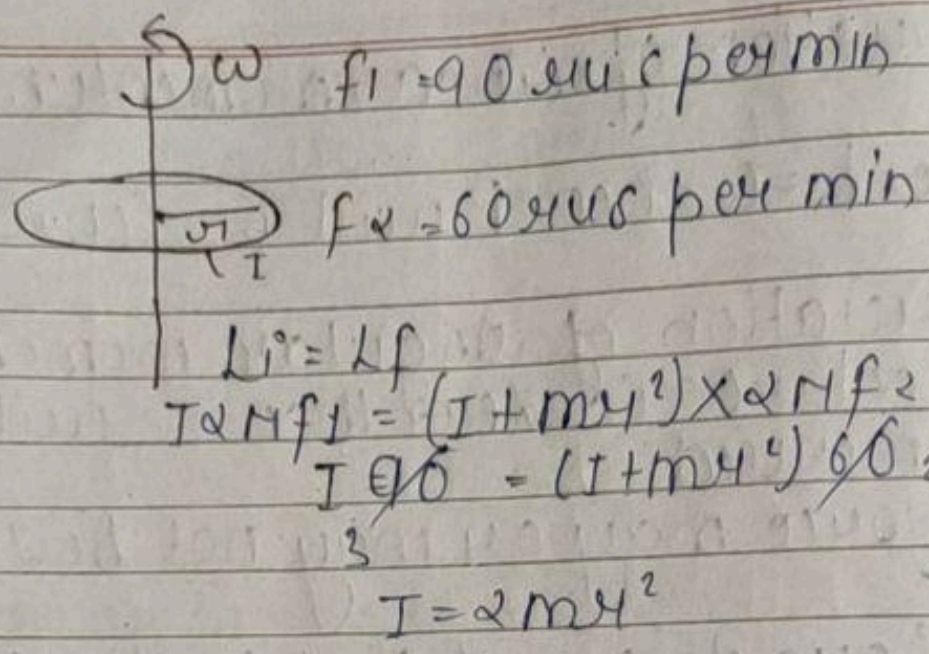 ω f1 = 90 rev per min
r
I
f2 = 60 revs per min
Li = Lf
I2πf1 = (I + mr²) × 2πf2
I 90 = (I + mr²) 60
3
I = 2mr²